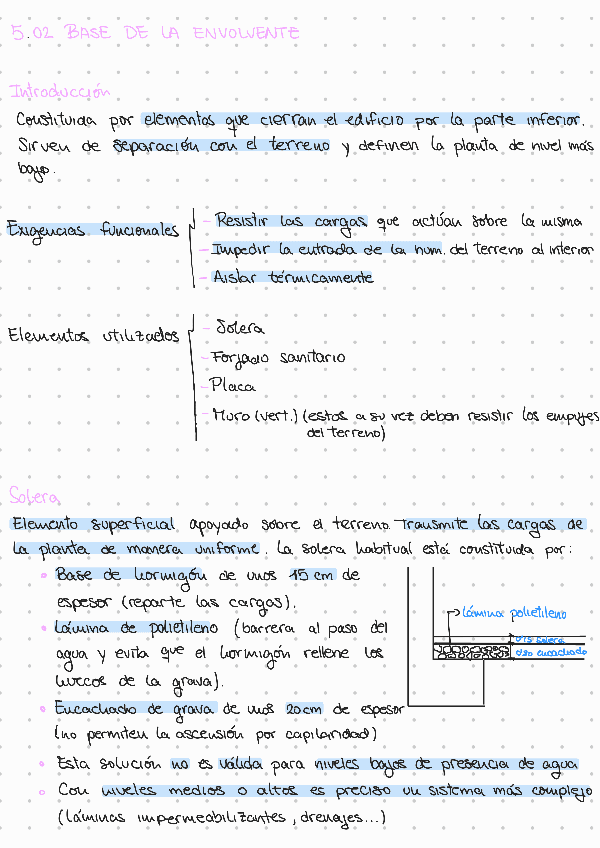 5.02 BASE DE LA ENVOLVENTE
Introducción
Constituida por elementos que cierran el edificio por la parte inferior.
Sirven de separación con el terreno y definen la planta de nivel más
bajo.
Exigencias funcionales
- Resistir las cargas que actúan sobre la misma
- Impedir la entrada de la hum. del terreno al interior
- Aislar térmicamente
Elementos utilizados
- Solera
- Forjado sanitario
- Placa
- Muro (vert.) (estos a su vez deben resistir los empujes
del terreno)
Solera
Elemento superficial apoyado sobre el terreno. Transmite las cargas de
la planta de manera uniforme. La solera habitual está constituida por:
• Base de hormigón de unos 15 cm de
espesor (reparte las cargas).
• Lámina de polietileno (barrera al paso del
agua y evita que el hormigón rellene los
huecos de la grava).
• Encachado de grava de unos 20cm de espesor
(no permiten la ascensión por capilaridad)
• Esta solución no es válida para niveles bajos de presencia de agua
• Con niveles medios o altos es preciso un sistema más complejo
(láminas impermeabilizantes, drenajes...)
Lámina polietileno
0'15 solera
encachado